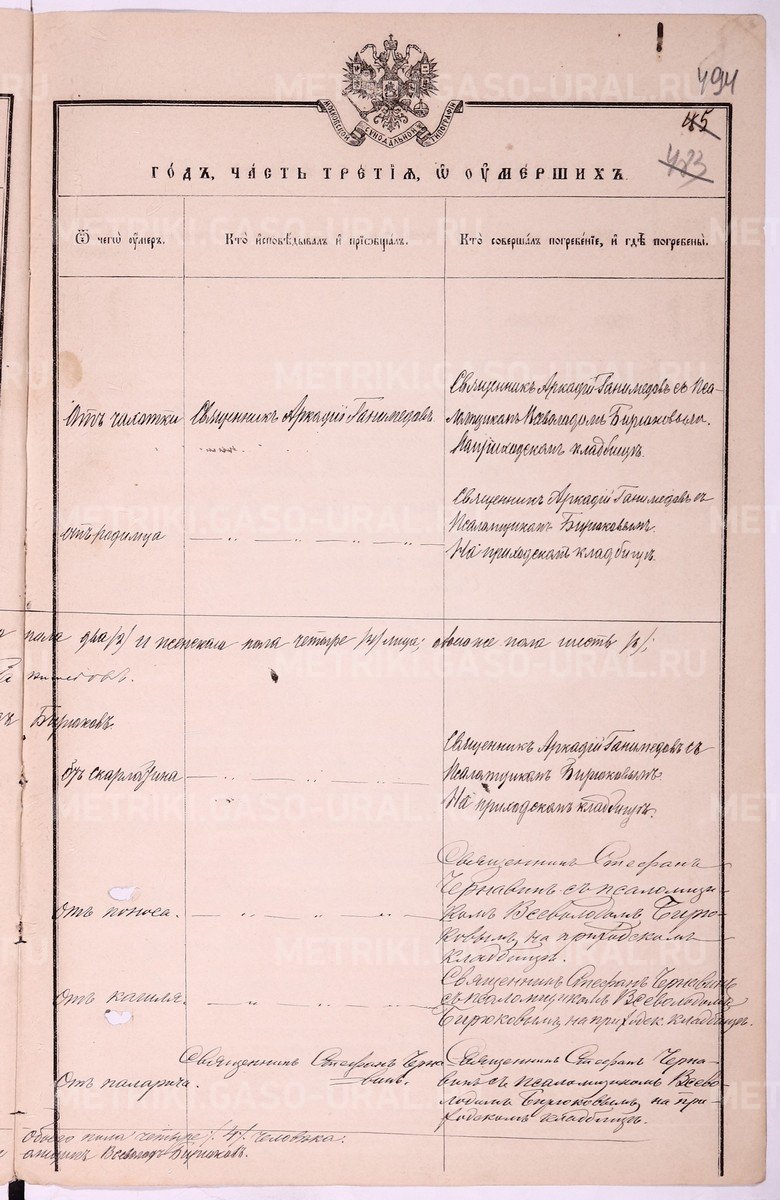 494
45
483
МОСКОВСКОЙ СѴНОДАЛЬНОЙ ТИПОГРАФІИ
ГОДЪ, ЧАСТЬ ТРЕТІѦ, Ѿ ОУМЕРШИХЪ.
Ѿ чегѡ оумеръ.
Кто исповѣдывалъ и прїобщалъ.
Кто совершалъ погребенїе, и гдѣ погребены.
Отъ чахотки
Священникъ Аркадій Ганимедовъ
Священникъ Аркадій Ганимедовъ съ Пса-
ломщикомъ Всеволодомъ Бирюковымъ.
На приходскомъ кладбищѣ.
отъ родимца
Священникъ Аркадій Ганимедовъ съ
Псаломщикомъ Бирюковымъ.
На приходскомъ кладбищѣ.
пола два /2/ и женскаго пола четыре /4/ лица; обоего же пола шесть /6/;
Бирюковъ.
отъ скарлатина
Священникъ Аркадій Ганимедовъ съ
Псаломщикомъ Бирюковымъ.
На приходскомъ кладбищѣ.
Отъ поноса.
Священникъ Стефанъ
Чернавинъ съ псаломщи-
комъ Всеволодомъ Бирю-
ковымъ, на приходскомъ
кладбищѣ.
Отъ кашля.
Священникъ Стефанъ Чернавинъ
съ псаломщикомъ Всеволодомъ
Бирюковымъ, на приходск. кладбищѣ.
Отъ паралича.
Священникъ Стефанъ Черна
винъ.
Священникъ Стефанъ Черна-
винъ съ псаломщикомъ Всево-
лодомъ Бирюковымъ, на при-
ходскомъ кладбищѣ.
Обоего пола четыре /4/ человѣка.
Всеволодъ Бирюковъ.
METRIKI.GASO-URAL.RU